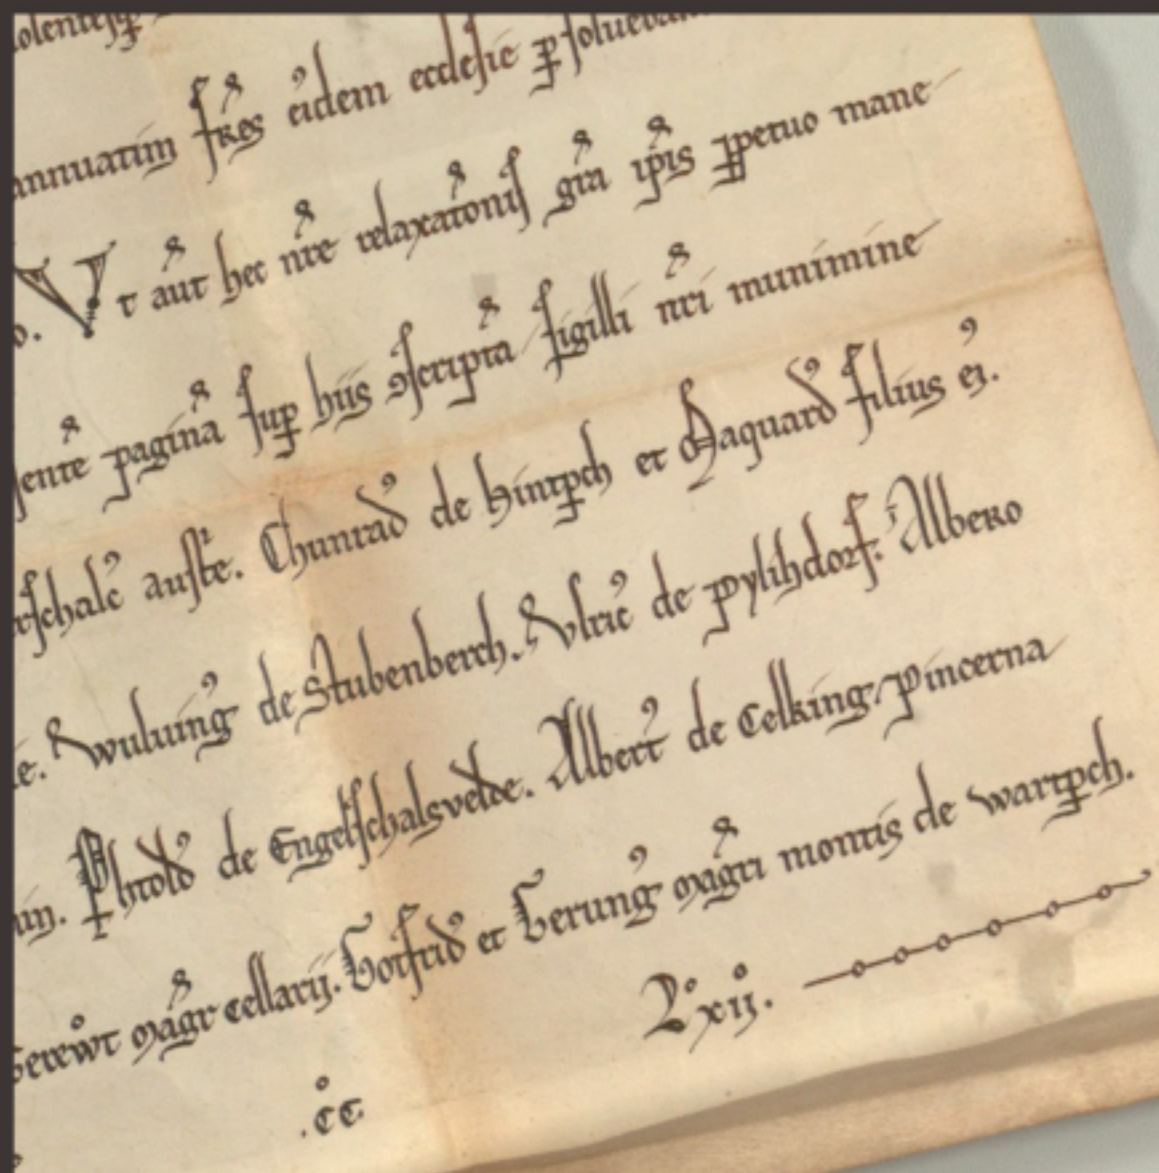 annuatim fr̃es eidem ecclesie ꝑsoluebant
o. Vt aut̃ hec nr̃e relaxat̃onis gr̃a ip̃is ꝑpetuo mane
sente pagina suꝑ hiis ꝯscripta sigilli nr̃i munimine
rschalc̉ austr̃e. Chunrad̉ de hintꝑch et Maquard̉ filius eỉ.
e. Wuluing̉ de Stubenberch. Vlric̉ de pylihdorf. Albero
in. Phtold̉ de Engelschalsvelde. Albert̉ de Celking. pincerna
Gerewt mag̃r cellarij. Gotfrid̉ et Gerung̉ mag̃ri montis de wartꝑch.
.cc̊. L̊xij̊.